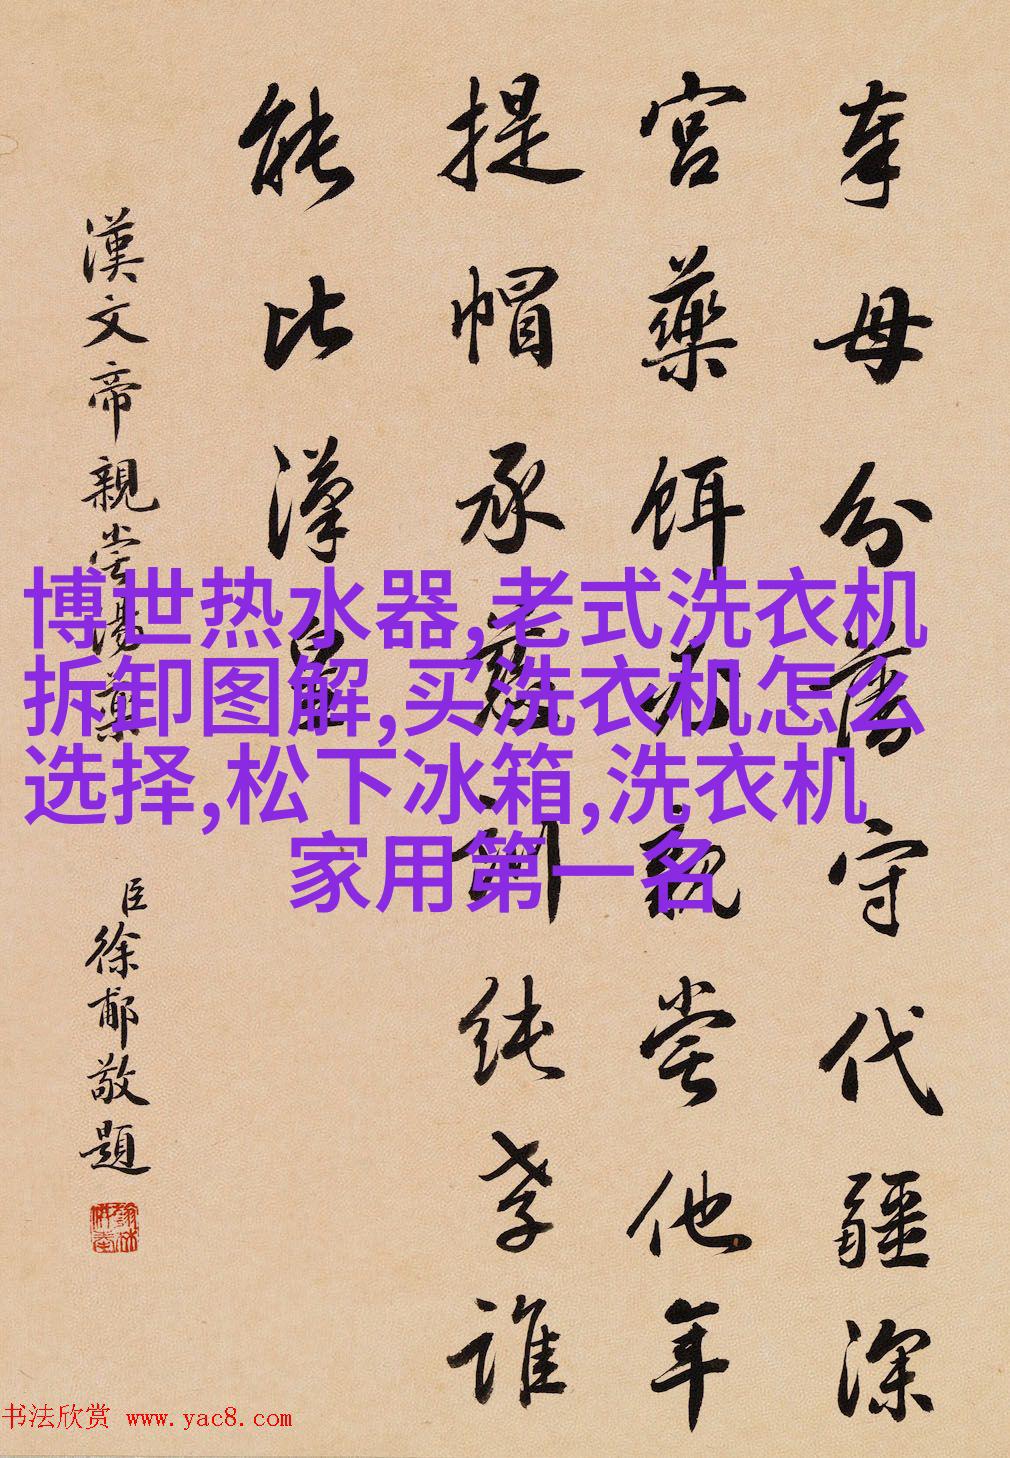 奉母分藩守代疆深
宮藥餌親嘗他年
提帽承慈訓純孝誰
能比漢皇
漢文帝親嘗湯藥
臣徐郙敬題
博世热水器,老式洗衣机
拆卸图解,买洗衣机怎么
选择,松下冰箱,洗衣机
家用第一名
书法欣赏 www.yac8.com